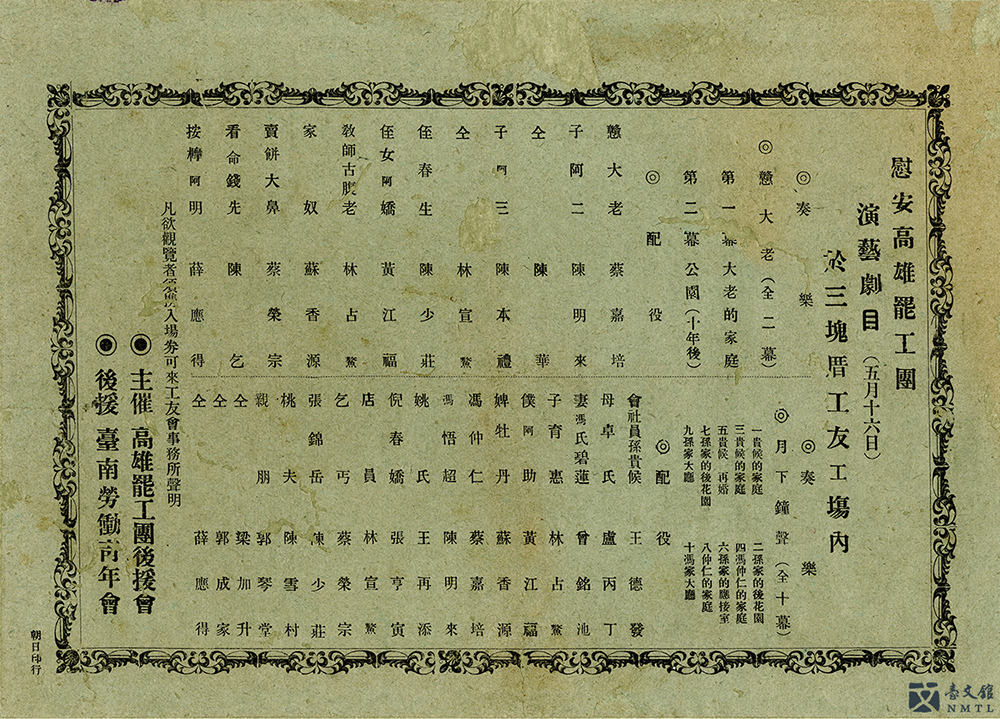 慰安高雄罷工團
演藝劇目(五月十六日)
於三塊厝工友工塲內
◎奏樂
◎戇大老(全二幕)
第一幕大老的家庭
第二幕公園(十年後)
◎配役
戇大老 蔡嘉培
子阿二 陳明來
仝 陳華
子阿三 陳本禮
仝 林宣鰲
侄春生 陳少莊
侄女阿嬌 黃江福
教師古腹老 林占鰲
家奴 蘇香源
賣餅大鼻 蔡榮宗
看命錢先 陳乞
按摔阿明 薛應得
◎奏樂
◎月下鐘聲(全十幕)
一貴候的家庭 二孫家的後花園
三貴候的家庭 四馮仲仁的家庭
五貴候再婚 六孫家的應接室
七孫家的後花園 八仲仁的家庭
九孫家大廳 十馮家大廳
◎配役
會社員孫貴候 王德發
母卓氏 盧丙丁
妻馮氏碧蓮 曾銘池
子育惠 林占鰲
僕阿助 黃江福
婢牡丹 蘇香源
馮仲仁 蔡嘉培
馮悟超 陳明來
姚氏 王再添
倪春嬌 張亨寅
店員 林宣鰲
乞丐 蔡榮宗
張錦岳 陳少莊
桃夫 陳雪村
親朋 郭琴堂
仝 梁加升
仝 郭成家
仝 薛應得
凡欲觀覽者入場券可來工友會事務所聲明
◉主催 高雄罷工團後援會
◉後援 臺南勞働青年會
朝日印行
臺文館
NMTL